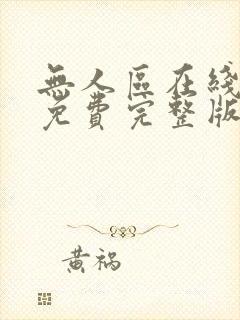 無人區在綫
免費完整版
黄禍